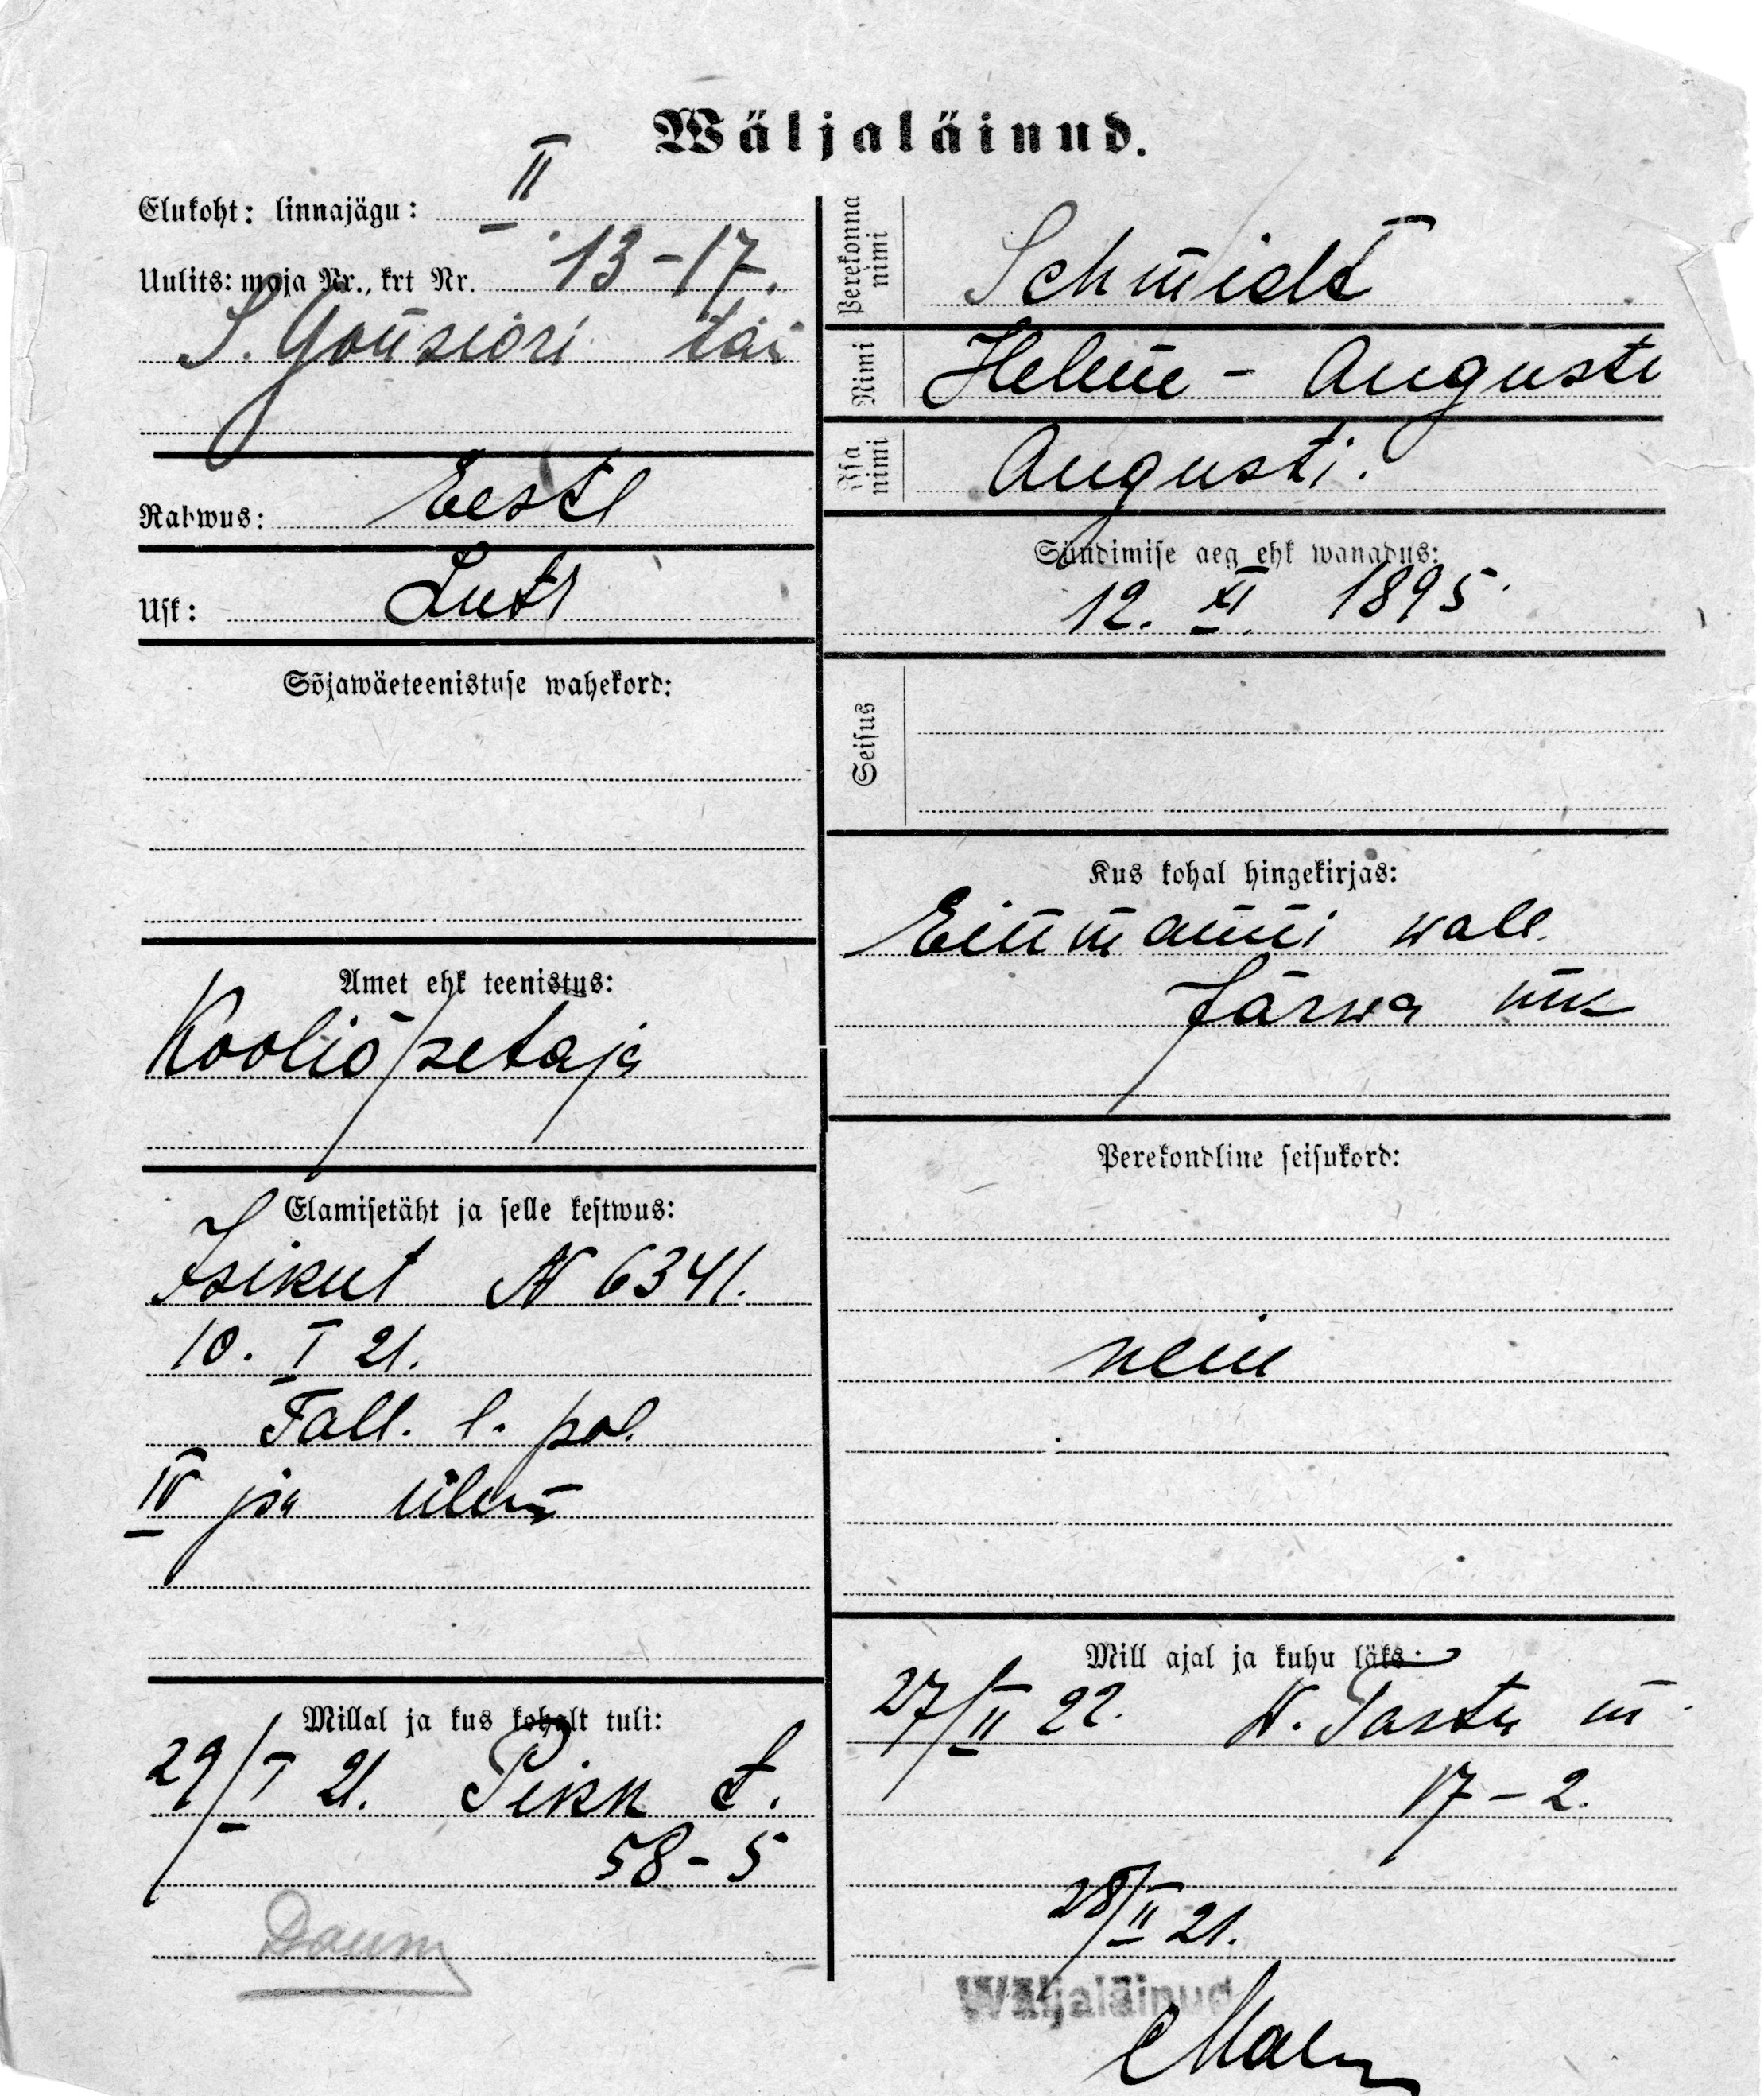 Wäljaläinud.
Elukoht: linnajägu: II
Uulits: maja Nr., krt Nr. 13-17.
S. Gonsiori tän
Rahwus: Eestl
Usk: Lutl
Sõjawäeteenistuse wahekord:
Amet ehk teenistus:
Kooliõpetaja
Elamisetäht ja selle kestwus:
Isikut N 6341.
10. I 21.
Tall. l. pol.
IV jsk ülem
Millal ja kus kohalt tuli:
29/I 21. Pikk t.
58-5
Daum
Perekonna nimi Schmidt
Nimi Helene - Auguste
Isa nimi Augusti.
Sündimise aeg ehk wanadus:
12. XI. 1895
Seisus
Kus kohal hingekirjas:
Einmanni wald.
Järwa mk
Perekondline seisukord:
neiu
Mill ajal ja kuhu läks:
27/II 22. W. Tartu m
17-2.
28/II 21.
Wäljaläinud